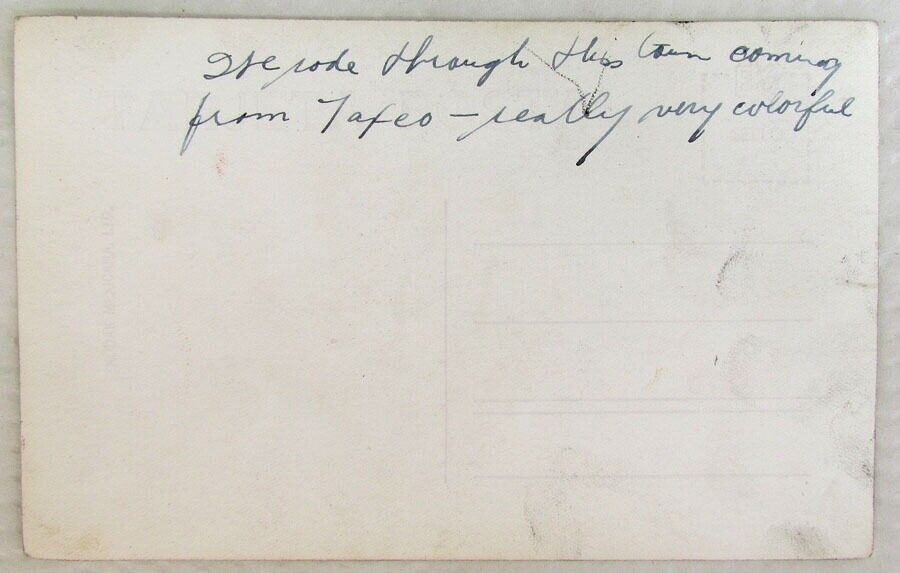 We rode through this town coming
from Taxco — really very colorful